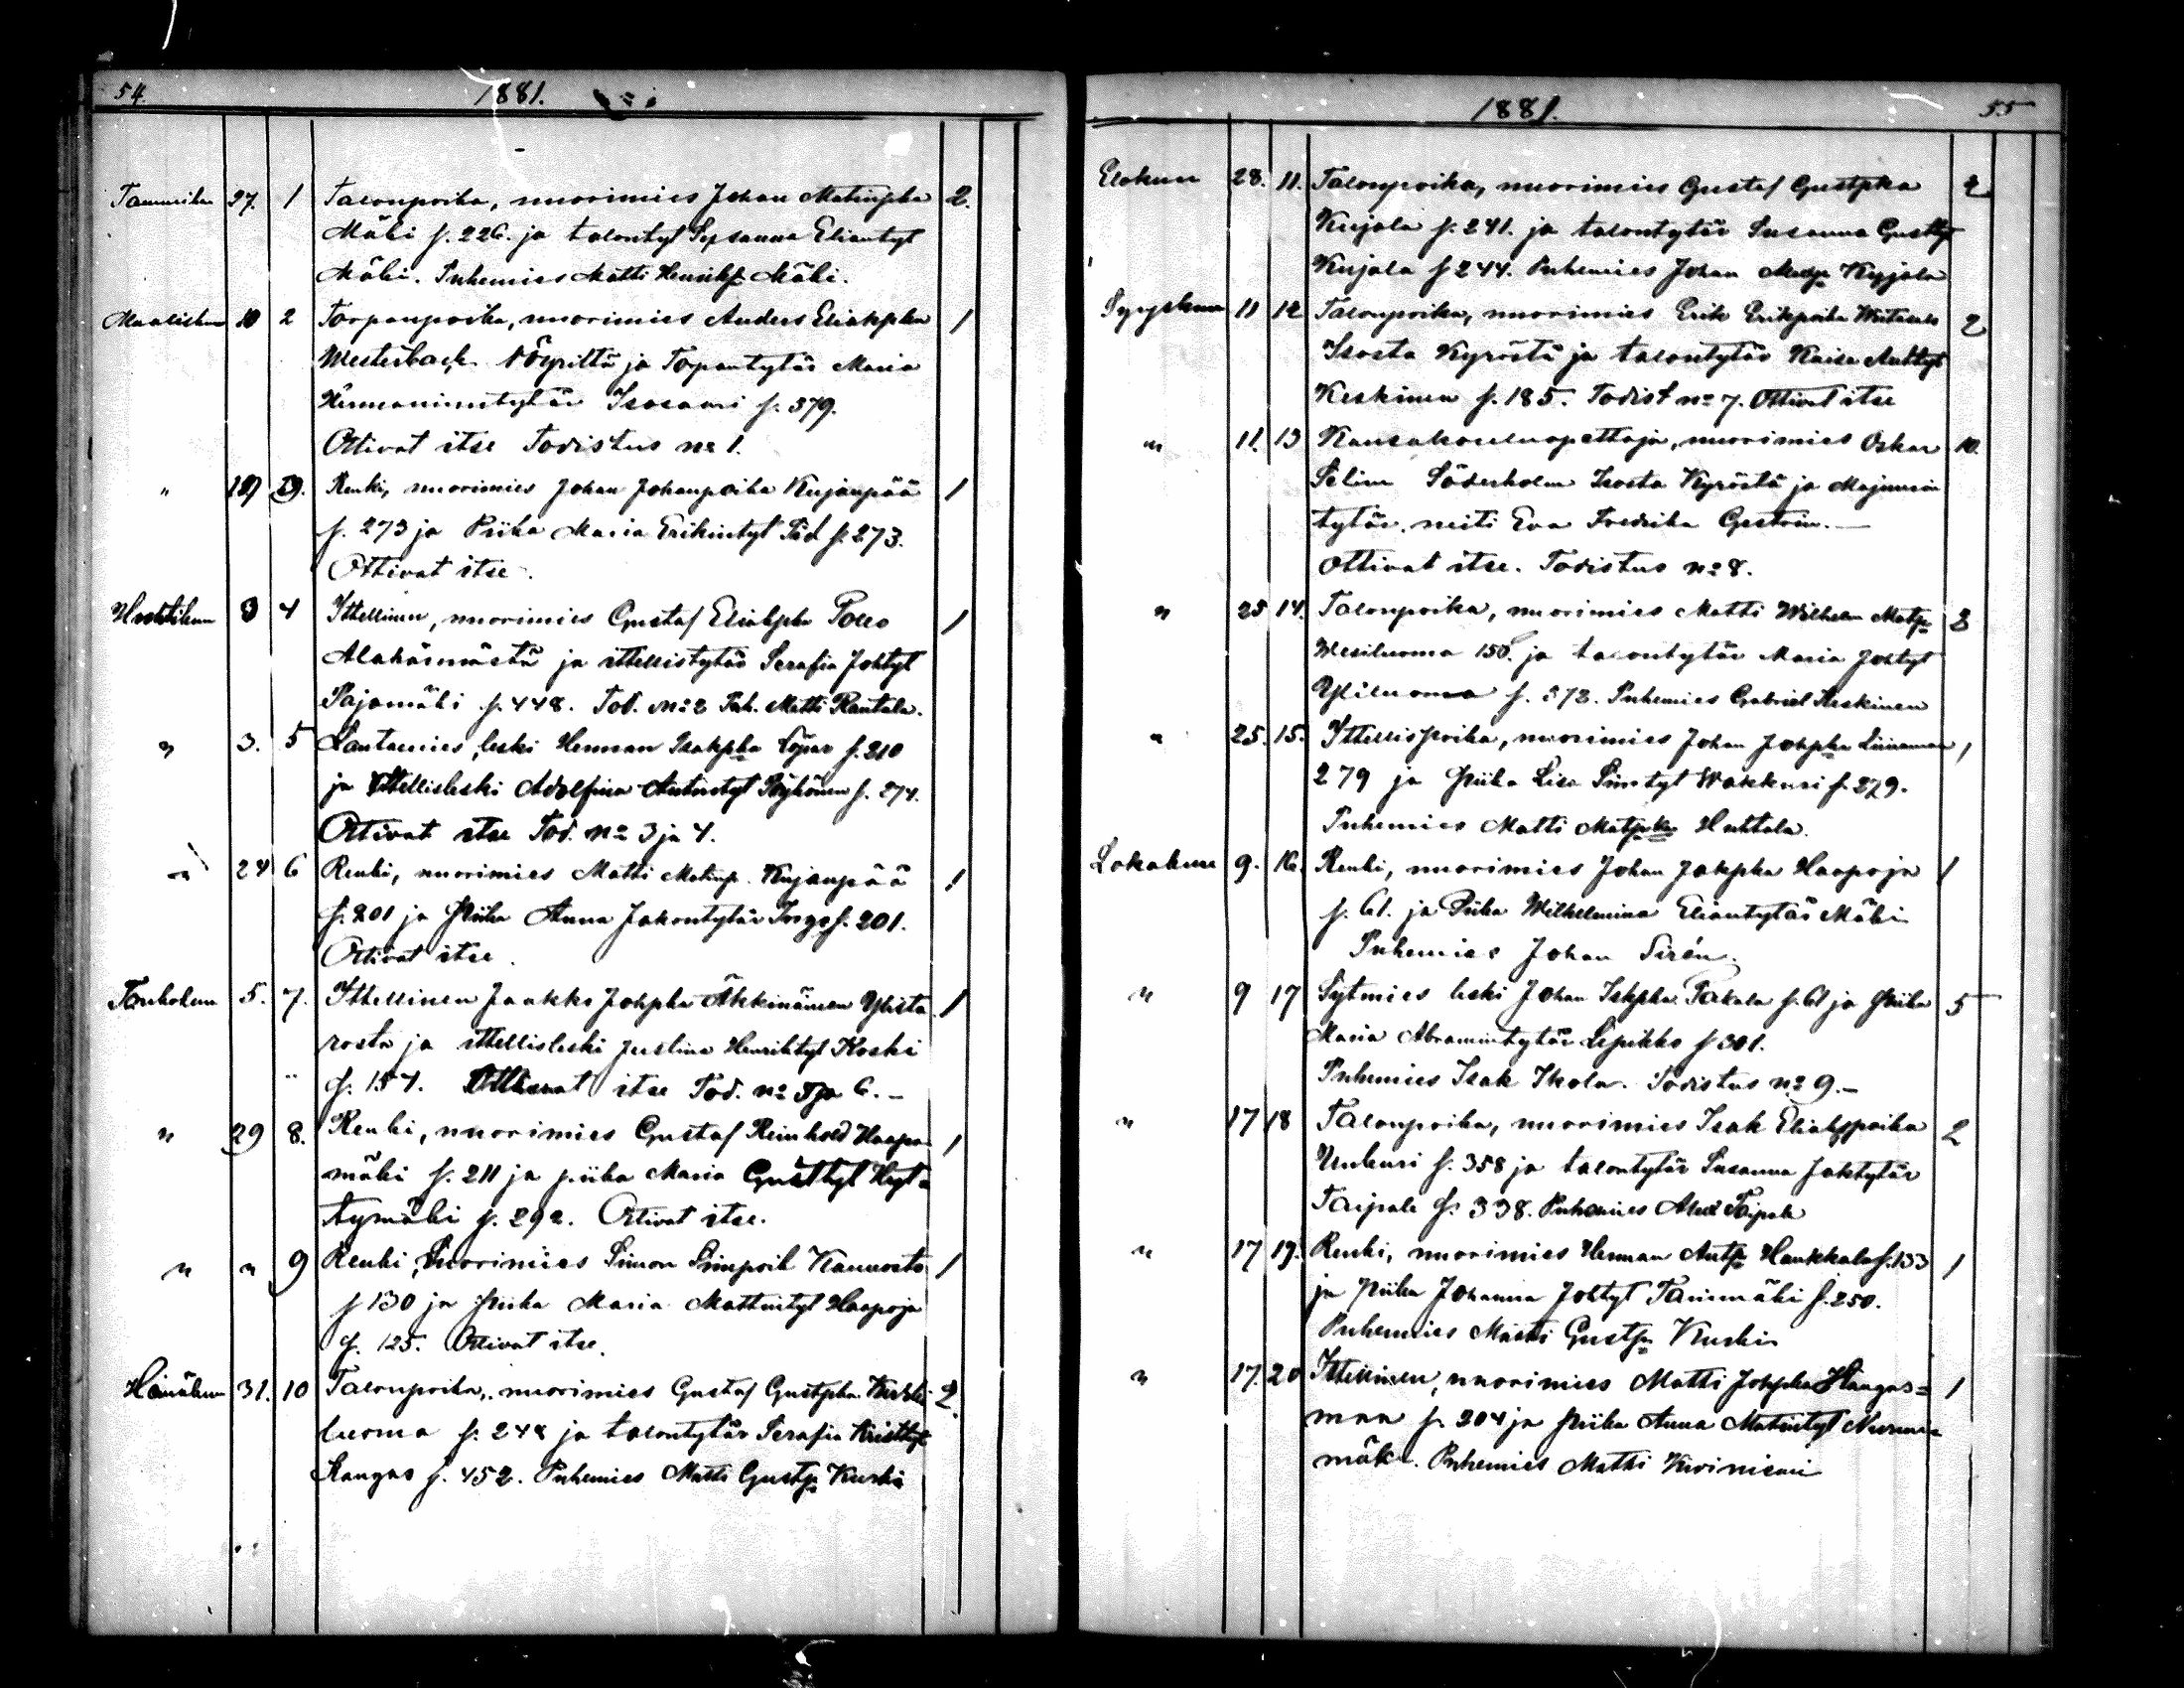 54. 1881.
Tammikuu 27. 1 Talonpoika, nuorimies Johan Matinpka 2.
Mäki s. 226. ja talontyt Susanna Eliantyt
Mäki. Puhemies Matti Henrikp Mäki.
Maaliskuu 10 2 Torpanpoika, nuorimies Anders Eliakpka 1
Westerback ja Torpantytär Maria
Hermanintytär Isosaari s. 379.
Ottivat itse Todistus no 1.
" 19 3. Renki, nuorimies Johan Johanpoika Kujanpää 1
s. 273 ja Piika Maria Erikintyt s. 273.
Ottivat itse.
Huhtikuu 3 4 Ittellinen, nuorimies Gustaf Eliakpka 1
Alahärmästä ja ittellistytär Serafia Johtyt
Pajamäki s. 448. Tod. no 2 Puh. Matti Rantala.
" 3. 5 leski Herman Isakpka s. 210
ja Ittellisleski Adolfina Antintyt s. 274.
Ottivat itse Tod. no 3 ja 4.
" 24 6 Renki, nuorimies Matti Matinp. Kujanpää 1
s. 201 ja Piika Anna Jakontytär s. 201.
Ottivat itse.
Toukokuu 5. 7. Ittellinen Jaakko Johpka Äkkinäinen Ylista 1
rosta ja ittellisleski Justina Henriktyt Koski
s. 154. Ottivat itse Tod. no 5 ja 6.-
" 29 8. Renki, nuorimies Gustaf Reinhold Haapa 1
mäki s. 211 ja piika Maria Gusttyt
s. 292. Ottivat itse.
" " 9 Renki, Nuorimies Simon Simpoik Kannosto 1
s 130 ja Piika Maria Mattintyt Haapoja
s. 125. Ottivat itse.
Heinäkuu 31. 10 Talonpoika, nuorimies Gustaf Gustpka 2.
luoma s. 248 ja talontytär Serafia Kristtyt
Kangas s. 452. Puhemies Matti Gustp Kuski
1881. 55
Elokuu 28. 11. Talonpoika, nuorimies Gustaf Gustpka 2
Kujala s. 241. ja talontytär Susanna Gusttyt
Kujala s 244. Puhemies Johan Kujala
Syyskuu 11 12 Talonpoika, nuorimies Erik Erikpoika 2
Isosta Kyröstä ja talontytär Kaisa Anttyt
Keskinen s. 185. Todist no 7. Ottivat itse
" 11. 13 Kansakouluopettaja, nuorimies Oskar 10.
Selim Söderholm Isosta Kyröstä ja
tytär, neiti Eva Fredrika
Ottivat itse. Todistus no 8.
" 25 14. Talonpoika, nuorimies Matti Wilhelm Matp
Wesiluoma 150. ja talontytär Maria Johtyt
Yliluoma s. 372. Puhemies Gabriel Keskinen
" 25. 15. Ittellispoika, nuorimies Johan Johpka 1
279 ja Piika Lisa Simtyt Wakkuri s. 279.
Puhemies Matti Matpka Huhtala.
Lokakuu 9. 16. Renki, nuorimies Johan Jakpka Haapoja 1
s. 61. ja Piika Wilhelmina Eliantytär Mäki
Puhemies Johan Sirén.
" 9 17 Sytmies leski Johan Iskpka Pakala s. 61 ja Piika 5
Maria Abramintytär Lepikko s 301.
Puhemies Isak Ikola. Todistus no 9.-
" 17 18 Talonpoika, nuorimies Isak Eliakppoika 2
Unkuri s. 358 ja talontytär Susanna Jaktytär
Taipale s. 338. Puhemies Taipale
" 17 19. Renki, nuorimies Herman Antp Haukkala s. 133 1
ja Piika Johanna Johtyt Tanimäki s. 250.
Puhemies Matti Gustp Kuski
" 17. 20 Ittellinen, nuorimies Matti Johpka Hangas= 1
maa s. 204 ja Piika Anna Matintyt Nurmi=
mäki. Puhemies Matti Kiviniemi